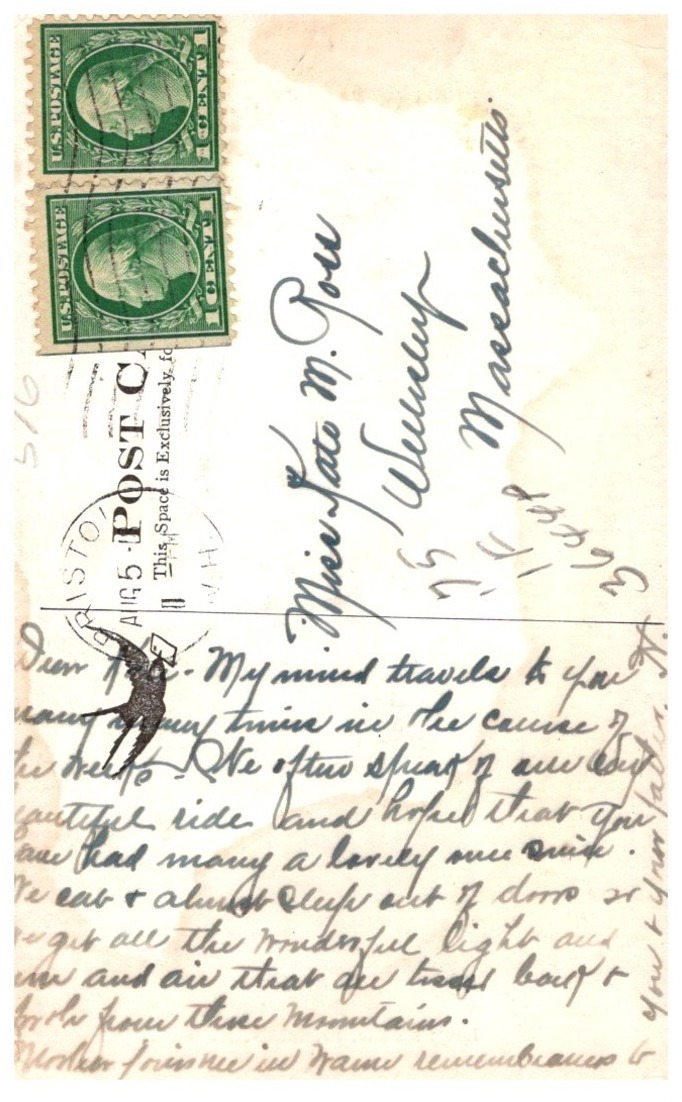 U.S. POSTAGE
1 CENT 1
U.S. POSTAGE
1 CENT 1
516
POST CA
This Space is Exclusively fo
BRISTO
AUG 5
N.H.
Miss Kate M. Ross
Wellesley
Massachusetts.
75
36448
Dear Kate - My mind travels to you
many many times in the course of
the week - We often speak of our
eautiful ride and hope that you
ave had many a lovely one since.
We eat & almost sleep out of doors so
we get all the wonderful light and
and air that are back &
forth from these mountains.
Mother joins me in warm remembrances to
you & your father. H.